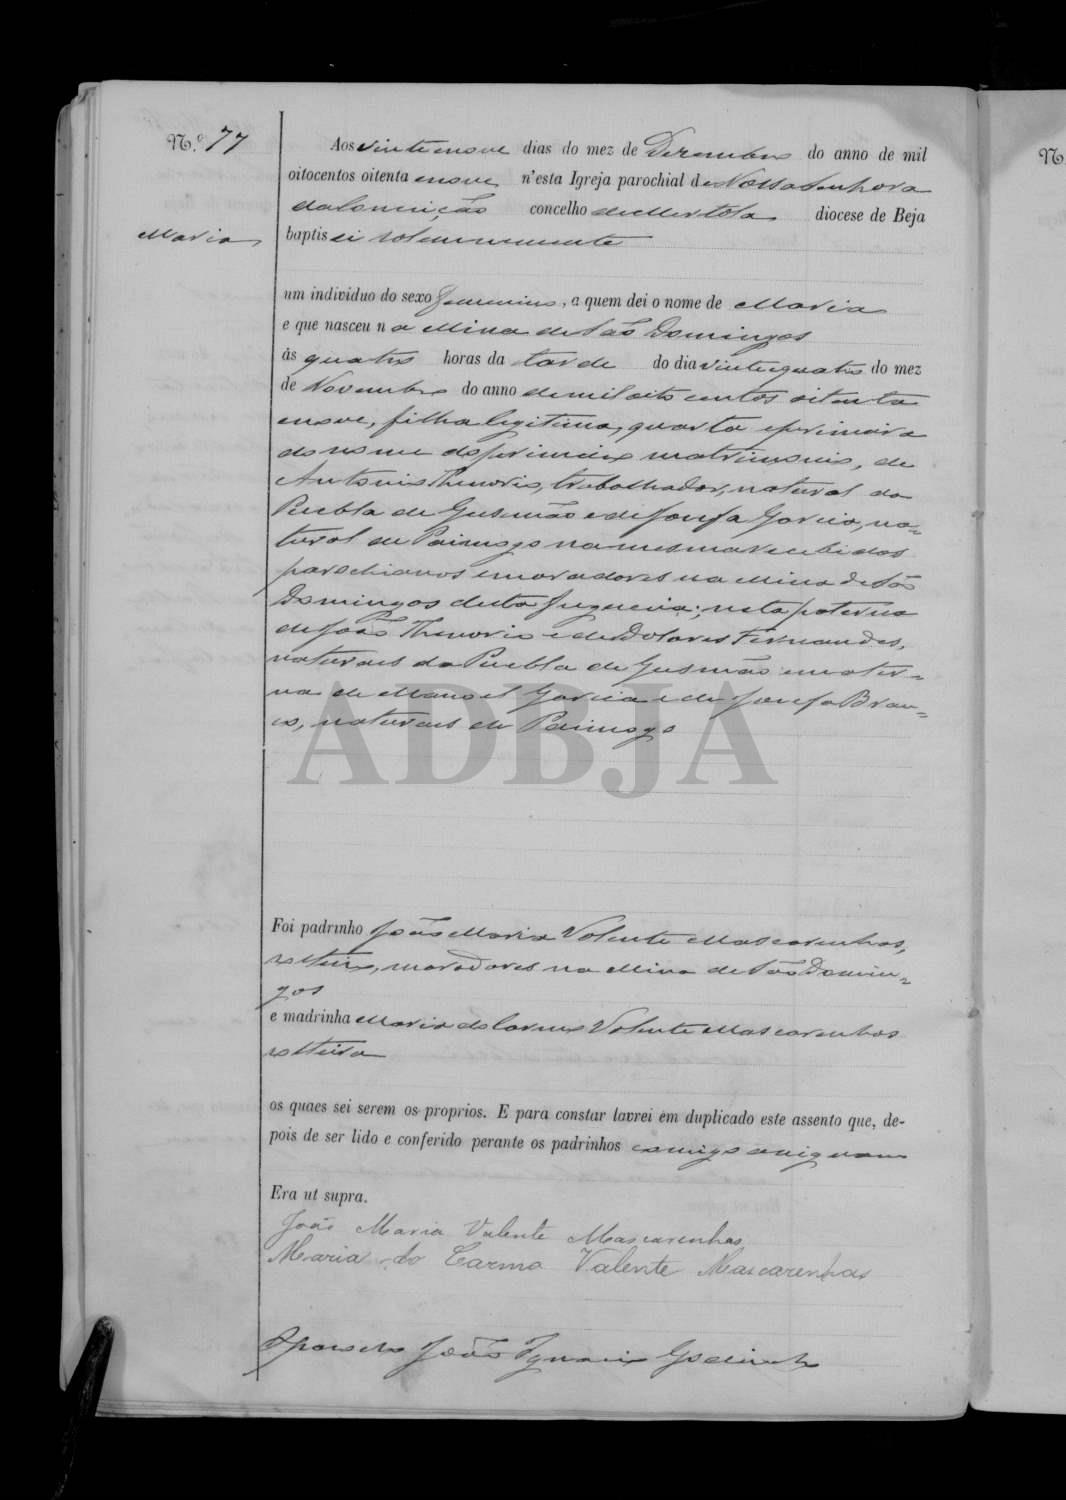 N.º 77
Aos vinte e nove dias do mez de Dezembro do anno de mil
oitocentos oitenta e nove n'esta Igreja parochial de Nossa Senhora
da Conceição concelho de Mertola diocese de Beja
Maria
baptisei solemnemente
um individuo do sexo femenino, a quem dei o nome de Maria
e que nasceu na Mina de São Domingos
ás quatro horas da tarde do dia vinte e quatro do mez
de Novembro do anno de mil oito centos oitenta
e nove, filha legitima, quarta e primeira
do nome do primeiro matrimonio, de
Antonio Thenorio, trabalhador, natural da
Puebla de Gusmão e de Josefa Garcia, na=
tural de Paimogo na mesma recebidos
parochianos e moradores na Mina de São
Domingos desta freguezia; neta paterna
de João Thenorio e de Dolores Fernandes,
naturaes da Puebla de Gusmão e mater=
na de Manoel Garcia e de Josefa Bran=
co, naturaes de Paimogo
ADBJA
Foi padrinho João Maria Valente Mascarenhas,
solteiro, moradores na Mina de São Domin=
gos
e madrinha Maria do Carmo Valente Mascarenhas
solteira
os quaes sei serem os proprios. E para constar lavrei em duplicado este assento que, de-
pois de ser lido e conferido perante os padrinhos comigo assignam
Era ut supra.
João Maria Valente Mascarenhas
Maria do Carmo Valente Mascarenhas
O parocho João Ignacio Godinho
N